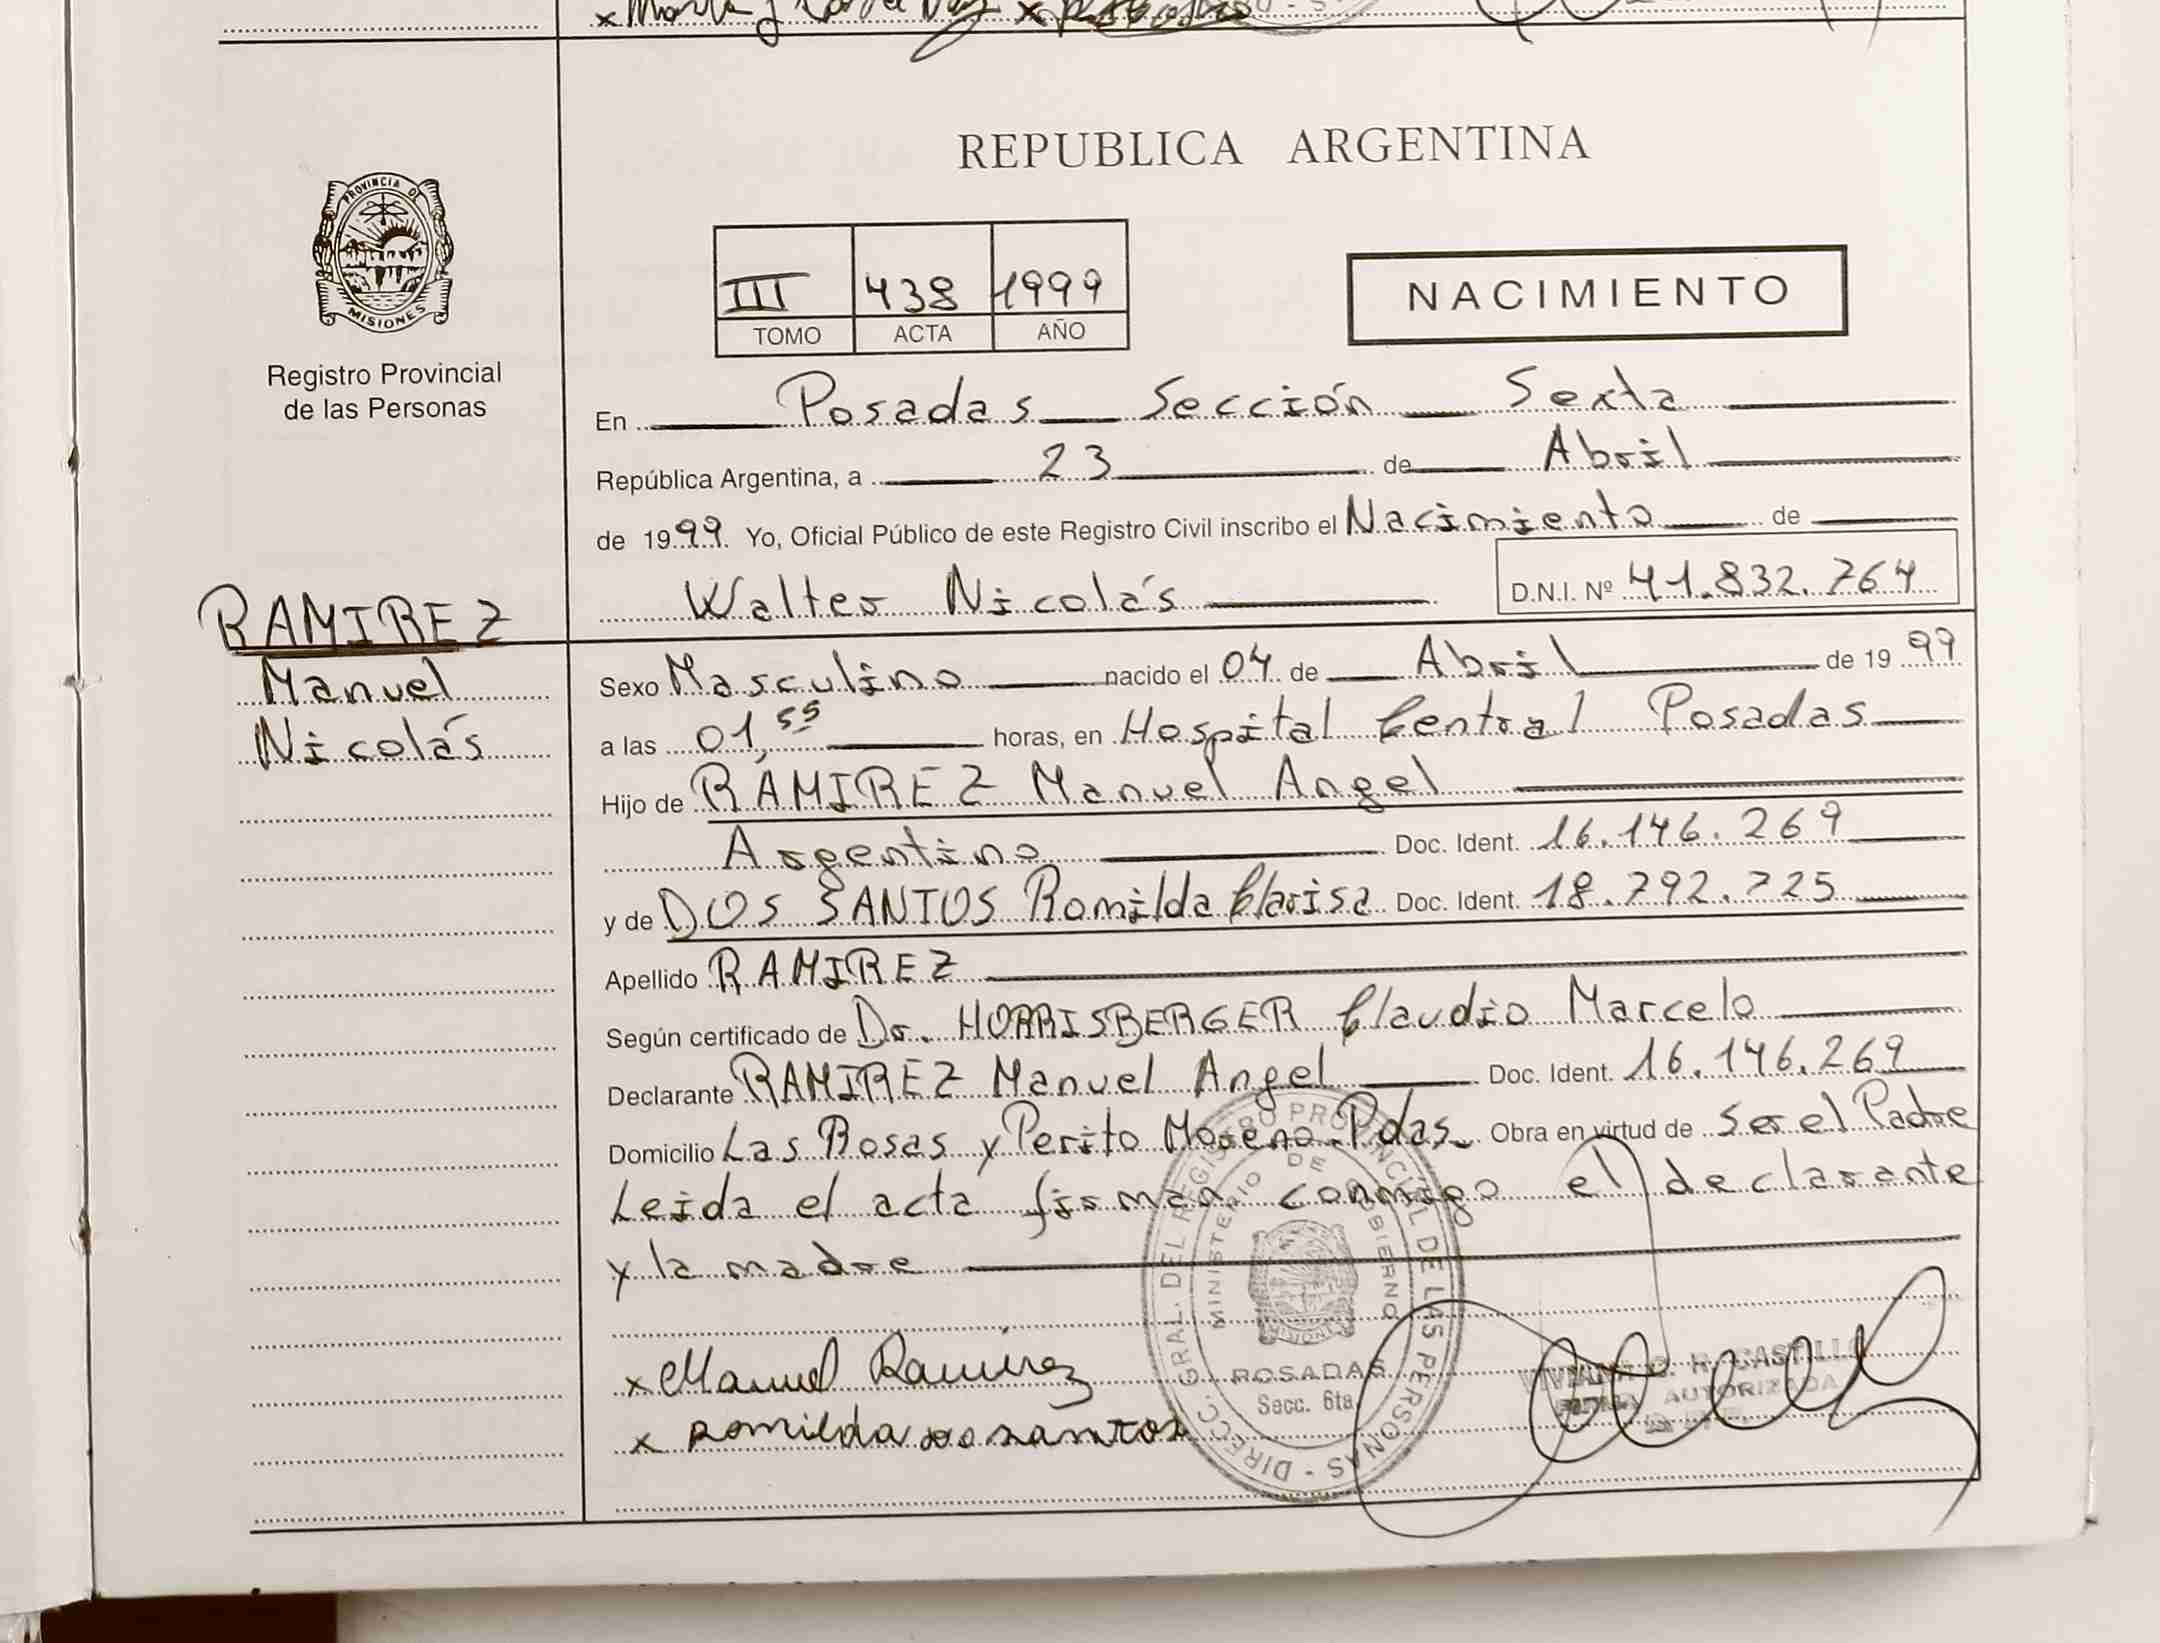 PROVINCIA DE
MISIONES
Registro Provincial
de las Personas
RAMIREZ
Manuel
Nicolás
REPUBLICA ARGENTINA
III 438 1999
TOMO ACTA AÑO
NACIMIENTO
En Posadas Sección Sexta
República Argentina, a 23 de Abril
de 1999 Yo, Oficial Público de este Registro Civil inscribo el Nacimiento de
Walter Nicolás D.N.I. Nº 41.832.764
Sexo Masculino nacido el 04 de Abril de 1999
a las 01,55 horas, en Hospital Central Posadas
Hijo de RAMIREZ Manuel Angel
Argentino Doc. Ident. 16.146.269
y de DOS SANTOS Romilda Clarisa Doc. Ident. 18.792.725
Apellido RAMIREZ
Según certificado de Dr. HORRISBERGER Claudio Marcelo
Declarante RAMIREZ Manuel Angel Doc. Ident. 16.146.269
Domicilio Las Rosas y Perito Moreno-Pdas Obra en virtud de Ser el Padre
Leida el acta firman conmigo el declarante
y la madre
x Manuel Ramirez
x Romilda dos santos
DIRECC. GRAL. DEL REGISTRO PROVINCIAL DE LAS PERSONAS
MINISTERIO DE GOBIERNO
POSADAS
Secc. 6ta
CASTILLO
AUTORIZADA